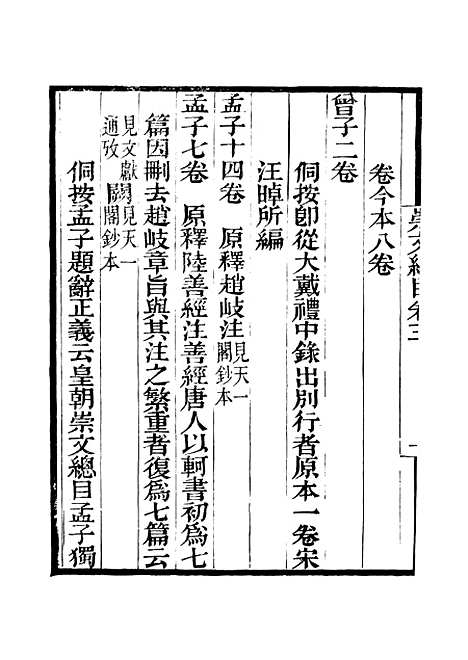 崇文總目卷三
一
卷今本八卷
曾子二卷
侗按卽從大戴禮中錄出別行者原本一卷宋
汪晫所編
孟子十四卷 原釋趙岐注見天一
閣鈔本
孟子七卷 原釋陸善經注善經唐人以軻書初爲七
篇因刪去趙岐章旨與其注之繁重者復爲七篇云
見文獻
通攷 又見天一
閣鈔本
侗按孟子題辭正義云皇朝崇文總目孟子獨